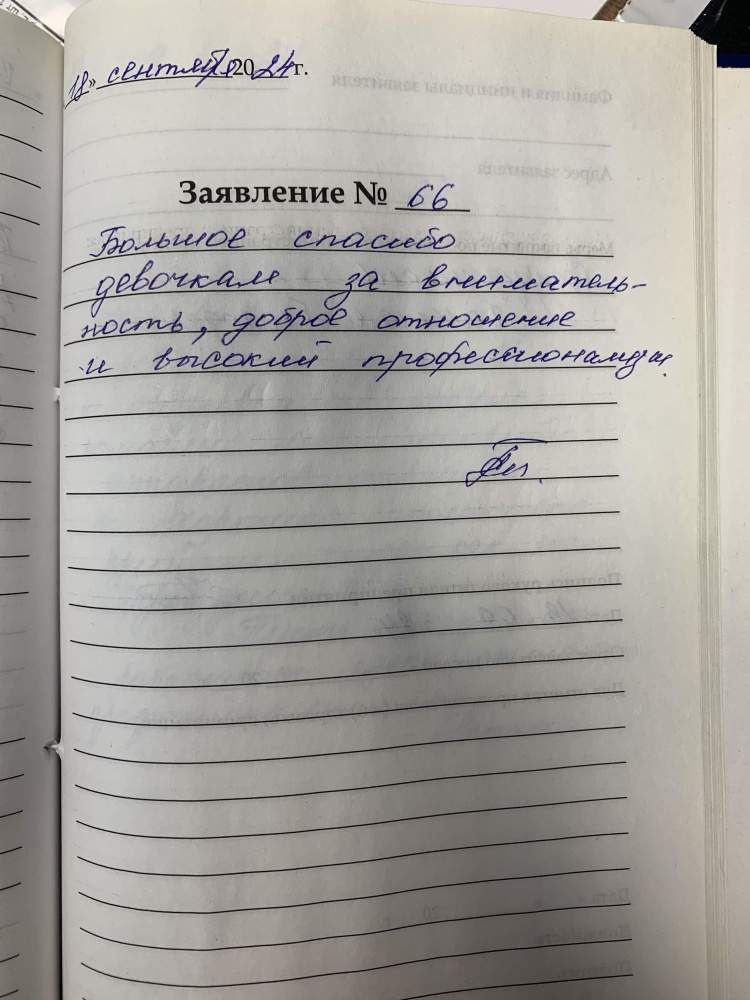 18» сентября 2024г.
Заявление № 66
Большое спасибо
девочкам за вниматель-
ность, доброе отношение
и высокий профессионализм.